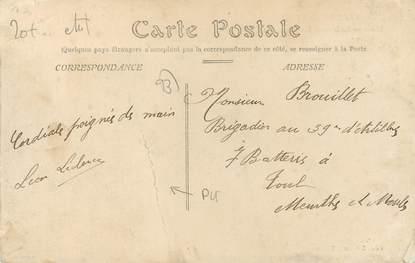 Carte Postale
Quelques pays étrangers n'acceptent pas la correspondance de ce côté, se renseigner à la Poste
CORRESPONDANCE
ADRESSE
Cordiale poignés de main
Léon
Monsieur Brouillet
Brigadier au 39me d'Artillerie
7 Batterie à
Toul
Meurthe et Moselle
PLI